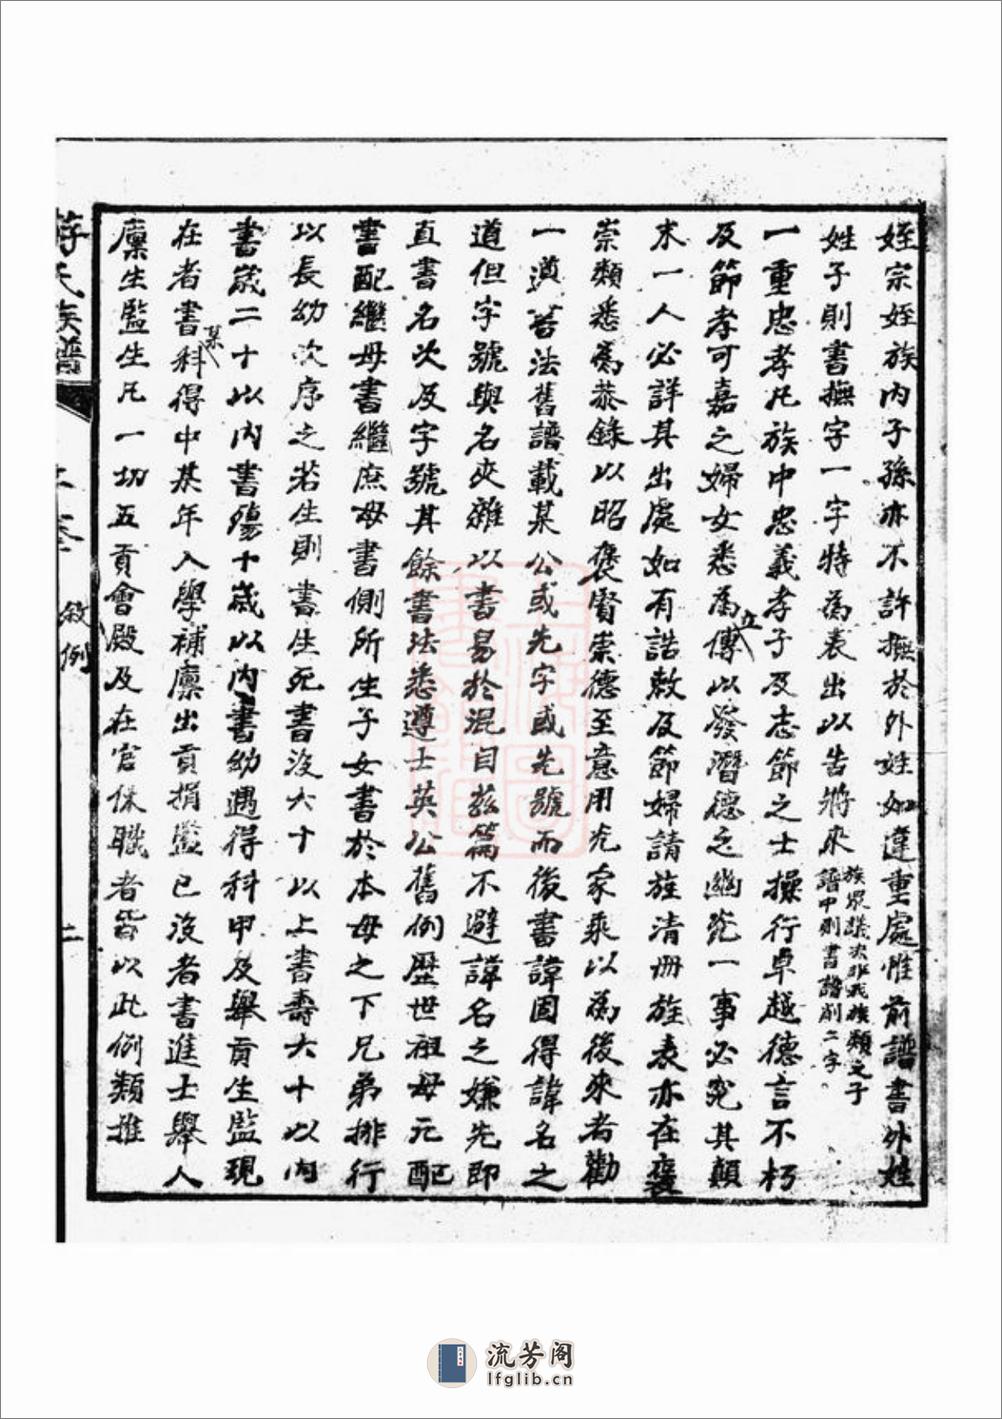 姪宗姪族內子孫亦不許撫於外姓如違重處惟前譜書外姓
姓子則書撫字一字特為表出以告將來族眾議決非我族類之子譜中則書譜削二字
一重忠孝凡族中忠義孝子及志節之士操行卓越德言不朽
及節孝可嘉之婦女悉為立傳以發潛德之幽光一事必究其顛
末一人必詳其出處如有誥敕及節婦請旌清冊旌表亦在裒
崇類悉為恭錄以昭褒賢崇德至意用光家乘以為後來者勸
一遵普法舊譜載某公或先字或先號而後書諱固得諱名之
道但字號與名夾雜以書易於混目茲篇不避諱名之嫌先即
直書名次及字號其餘書法悉遵士英公舊例歷世祖母元配
書配繼母書繼庶母書側所生子女書於本母之下兄弟排行
以長幼次序之若生則書生死書沒六十以上書壽六十以內
書歲二十以內書殤十歲以內書幼遇得科甲及舉貢生監現
在者書某科得中某年入學補廩出貢捐監已沒者書進士舉人
廩生監生凡一切五貢會殿及在官休職者皆以此例類推
蔣氏族譜
敘例
二
流芳阁
lfglib.cn